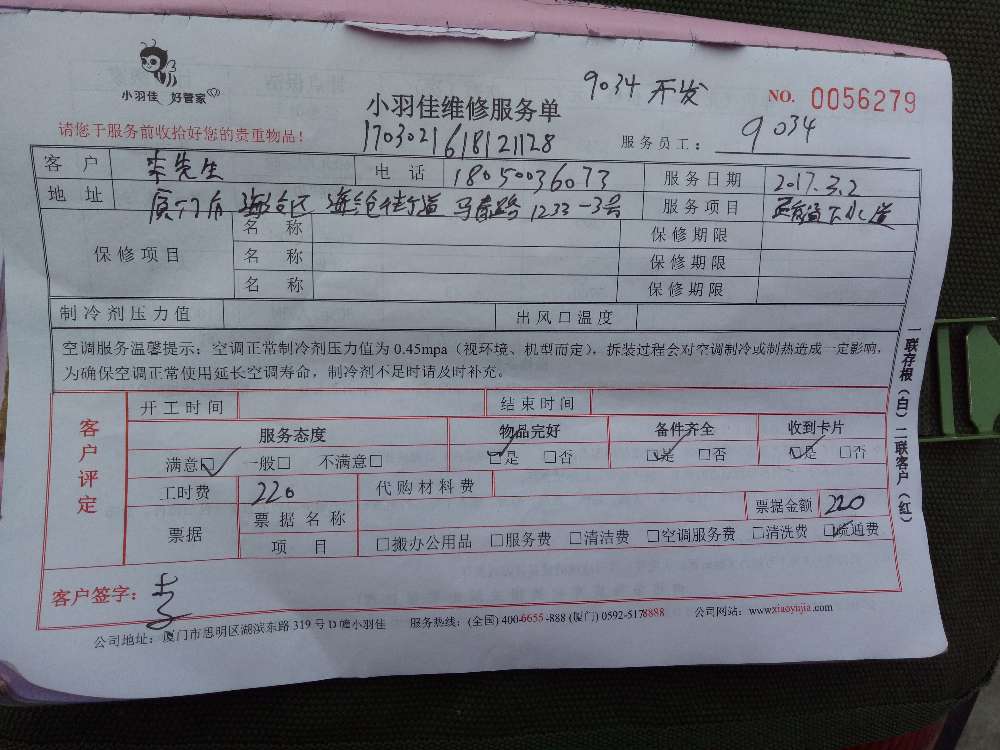 小羽佳 好管家
9034 开发
NO. 0056279
小羽佳维修服务单
请您于服务前收拾好您的贵重物品！
1703021618121128
服务员工： 9034
客 户 李先生 电 话 18050036073 服务日期 2017.3.2
地 址 厦门市 海沧区 海沧街道 马青路 1233-3号 服务项目 下水道
保修项目
名 称 保修期限
名 称 保修期限
名 称 保修期限
制冷剂压力值 出风口温度
空调服务温馨提示：空调正常制冷剂压力值为 0.45mpa（视环境、机型而定），拆装过程会对空调制冷或制热造成一定影响，
为确保空调正常使用延长空调寿命，制冷剂不足时请及时补充。
客户评定
开工时间 结束时间
服务态度 物品完好 备件齐全 收到卡片
满意□ 一般□ 不满意□ □是 □否 □是 □否 □是 □否
工时费 220 代购材料费
票据 票据名称 票据金额 220
项 目 □搬办公用品 □服务费 □清洁费 □空调服务费 □清洗费 □疏通费
客户签字： 李
公司地址：厦门市思明区湖滨东路 319 号 D 幢小羽佳 服务热线：(全国) 400-6655-888 (厦门) 0592-5178888 公司网站：www.xiaoyujia.com
一联存根（白）二联客户（红）